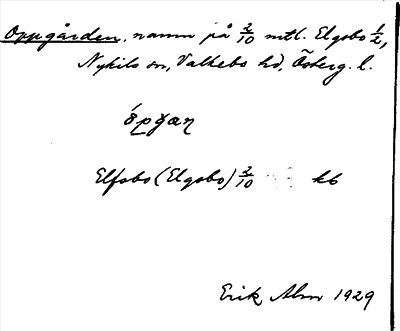 Oppgården, namn på 2/10 mtl. Elgsbo 1/2,
Nykils sn, Valkebo hd, Österg. l.
Elfsbo (Elgsbo) 2/10 kb
Erik Alm 1929